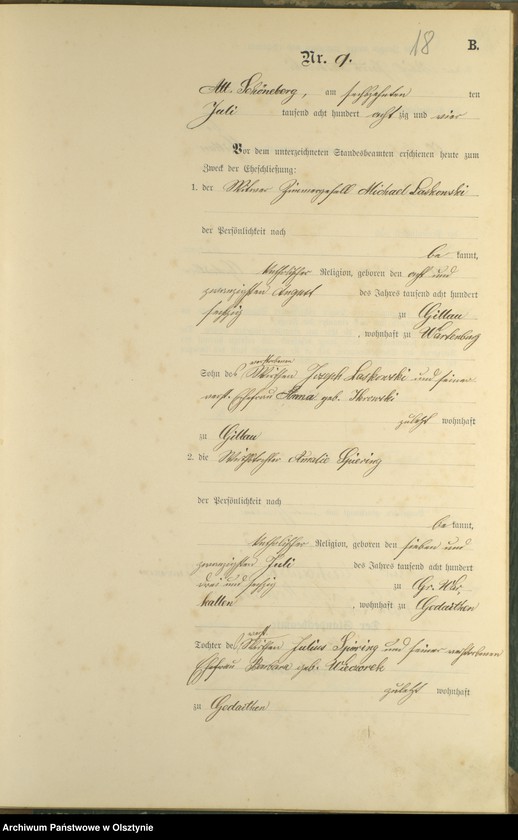 18
B.
Nr. 9.
Alt Schöneberg, am sechszehnten ten
Juli tausend acht hundert achtzig und vier
Vor dem unterzeichneten Standesbeamten erschienen heute zum
Zweck der Eheschließung:
1. der Witwer Zimmergesell Michael Laskowski
der Persönlichkeit nach
be kannt,
katholischer Religion, geboren den acht und
zwanzigsten August des Jahres tausend acht hundert
sechzig zu Gillau
, wohnhaft zu Wartenburg
verstorbenen
Sohn des Wirthen Joseph Laskowski und seiner
verst. Ehefrau Anna geb.
zuletzt wohnhaft
zu Gillau
2. die Wirthstochter Amalie Spiering
der Persönlichkeit nach
be kannt,
katholischer Religion, geboren den sieben und
zwanzigsten Juli des Jahres tausend acht hundert
drei und sechzig zu Gr.
, wohnhaft zu Gedaithen
verst.
Tochter des Wirthen Julius Spiering und seiner verstorbenen
Ehefrau Barbara geb. Wieczorek
zuletzt wohnhaft
zu Gedaithen
Archiwum Państwowe w Olsztynie